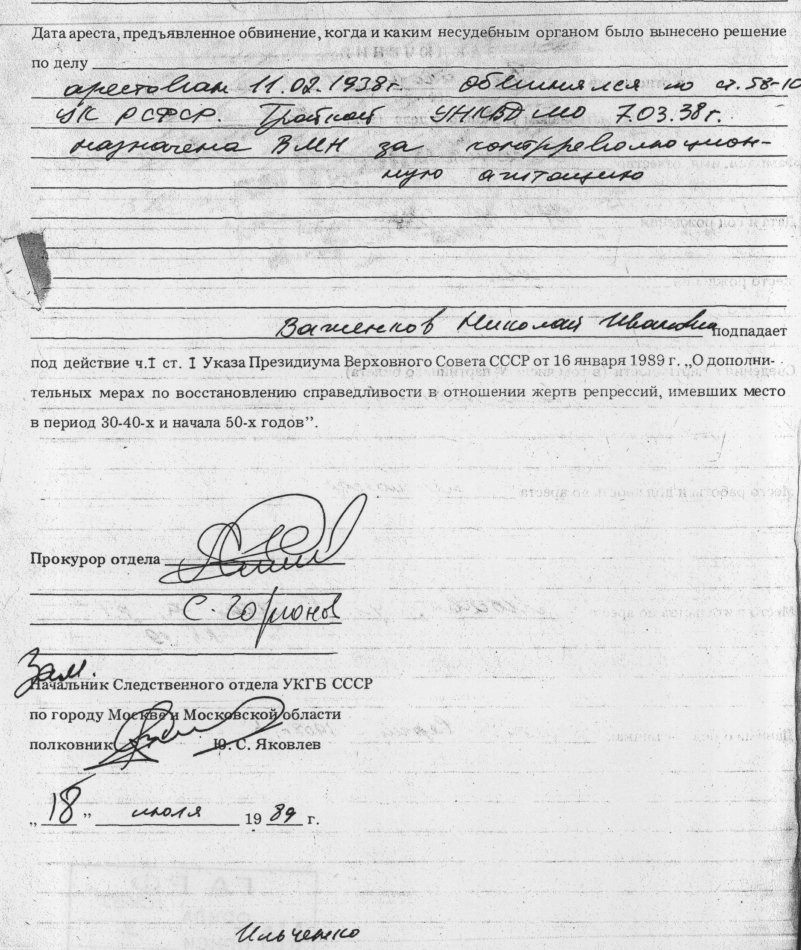 Дата ареста, предъявленное обвинение, когда и каким несудебным органом было вынесено решение
по делу
арестован 11.02.1938г. Обвинялся по ст. 58-10
УК РСФСР. Тройкой УНКВД МО 7.03.38г.
назначена ВМН за контрреволюцион-
ную агитацию
Важенков Николай Иванович подпадает
под действие ч.I ст. I Указа Президиума Верховного Совета СССР от 16 января 1989 г. „О дополни-
тельных мерах по восстановлению справедливости в отношении жертв репрессий, имевших место
в период 30-40-х и начала 50-х годов”.
Прокурор отдела
С.
Зам.
Начальник Следственного отдела УКГБ СССР
по городу Москве и Московской области
полковник Ю. С. Яковлев
„ 18 ” июля 19 89 г.
Ильченко